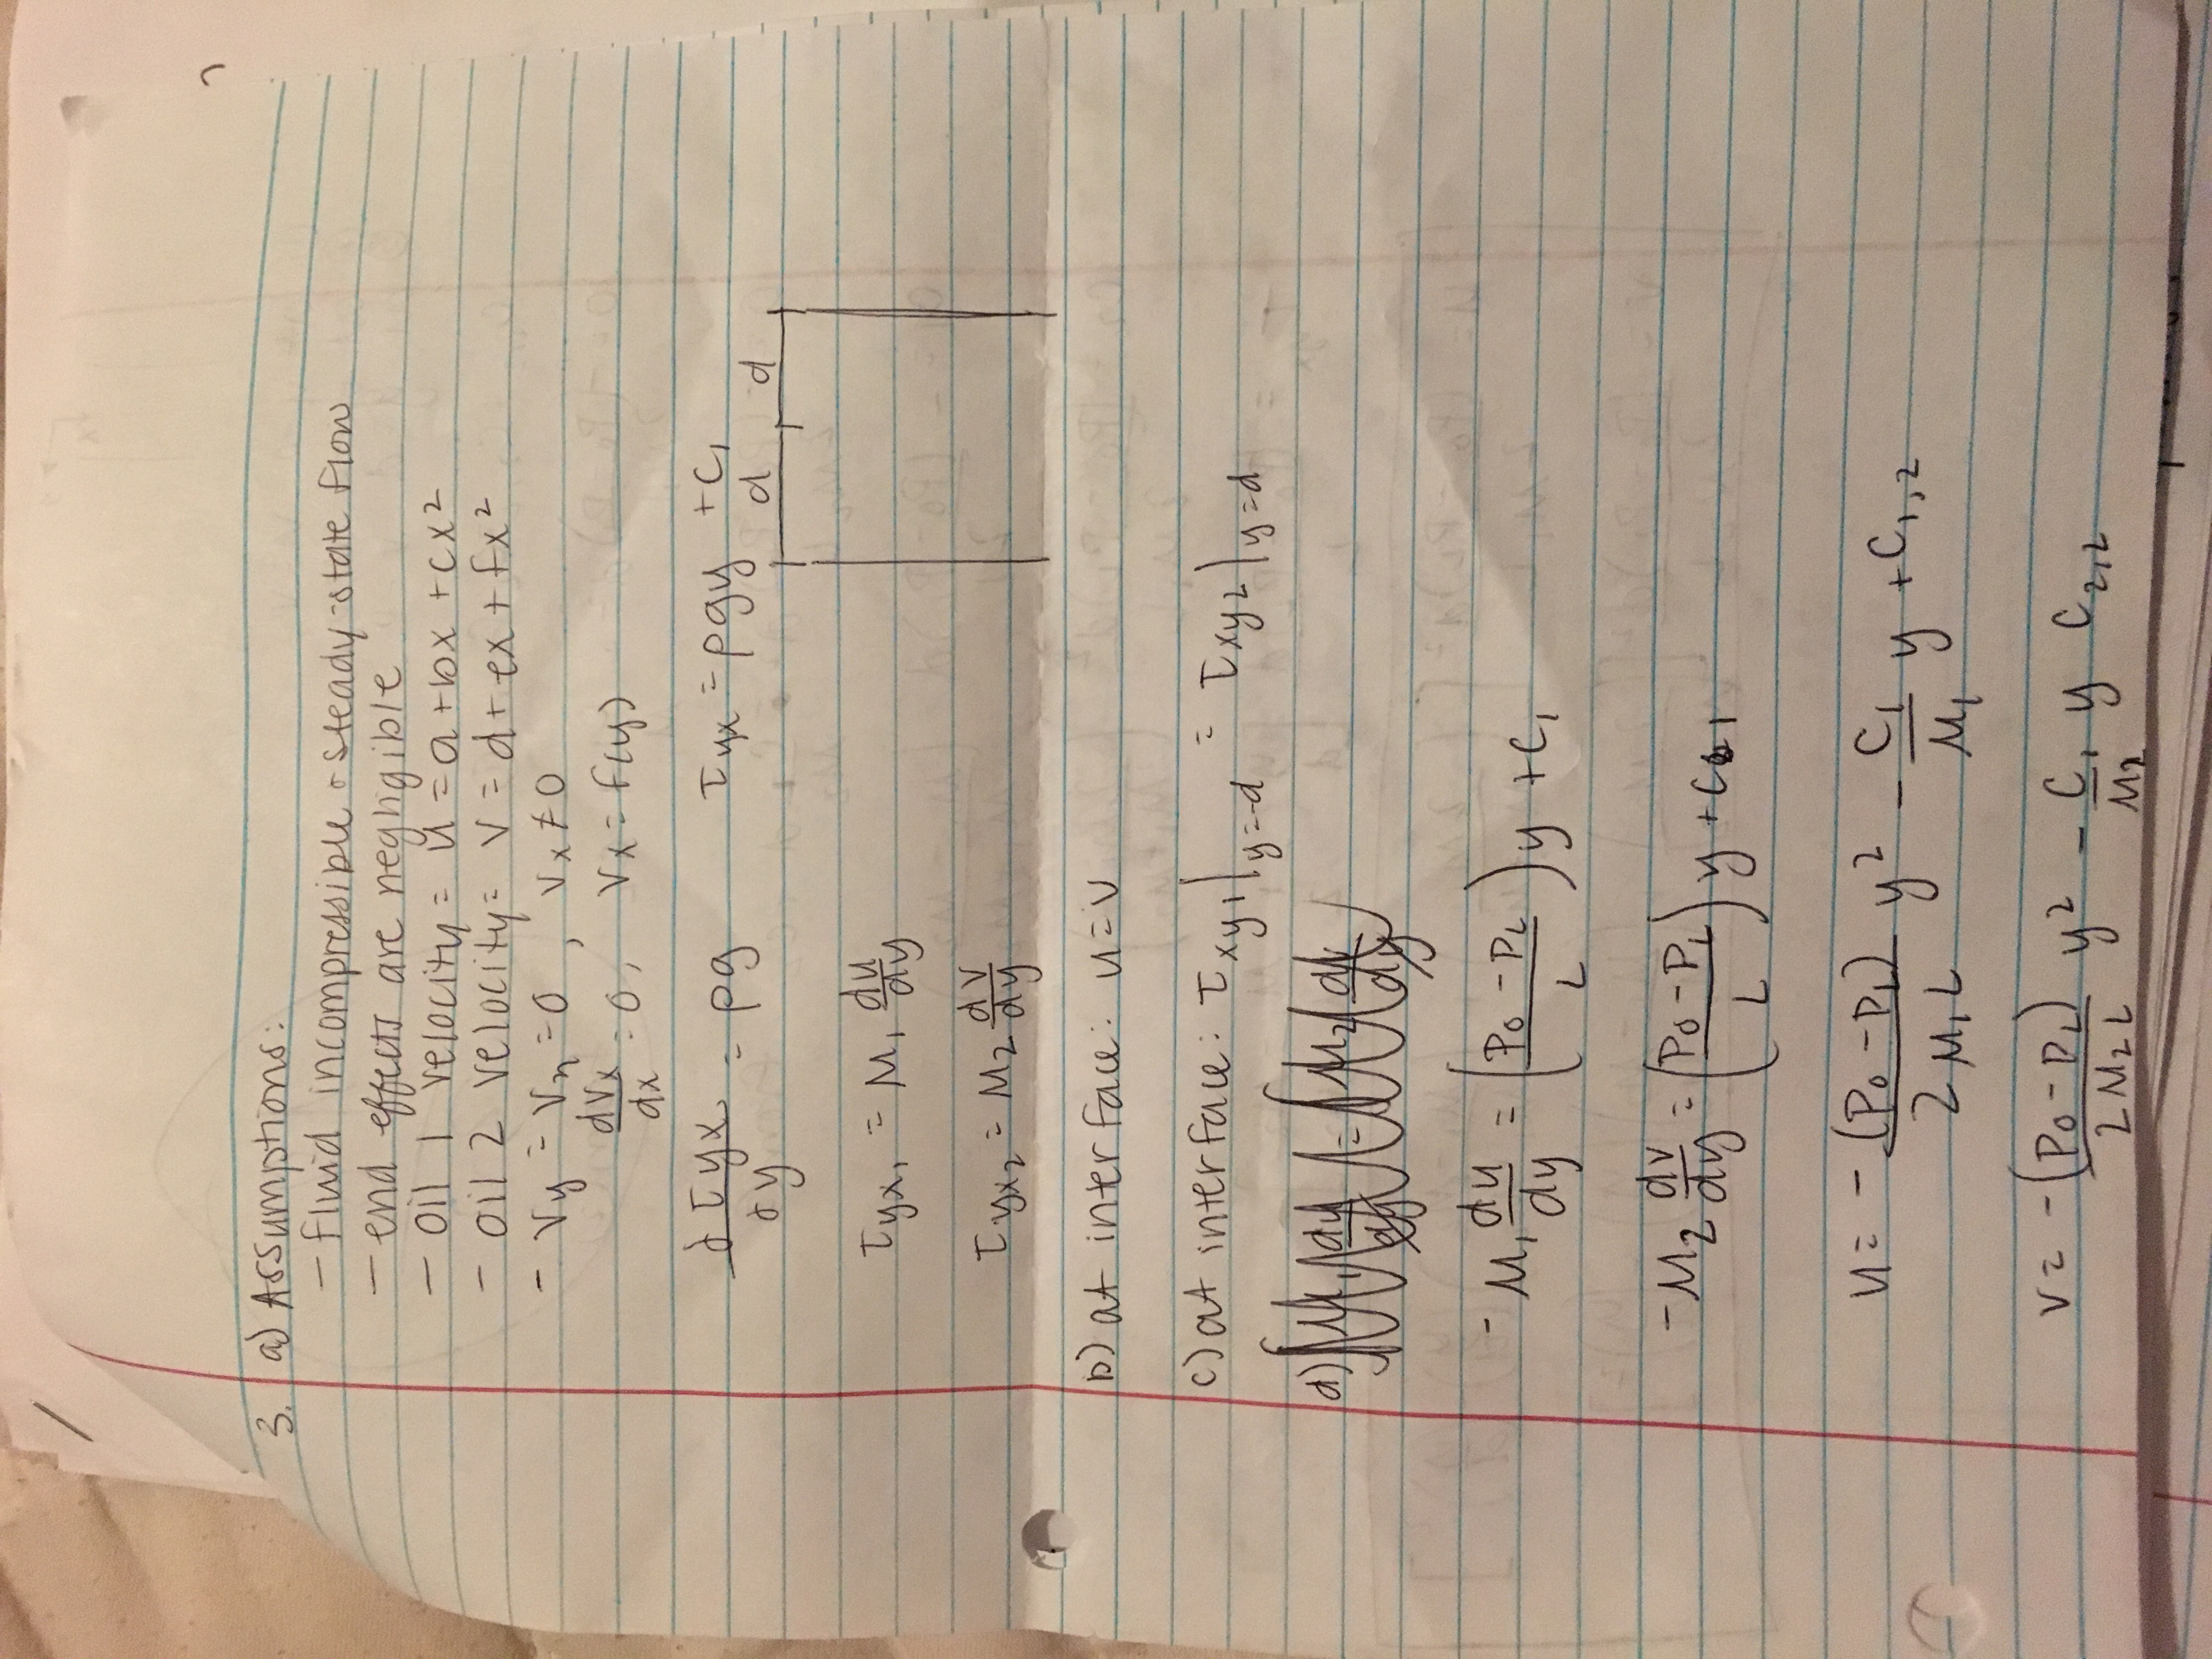 3. a) Assumptions:
- fluid incompressible & steady-state flow
- end effects are negligible
- oil 1 velocity = u = a + bx + cx²
- oil 2 velocity = v = d + ex + fx²
- Vy = Vz = 0, Vx ≠ 0
dVx/dx = 0, Vx = f(y)
∂τyx/∂y = ρg τyx = ρgy + C₁
d d
τyx₁ = M₁ du/dy
τyx₂ = M₂ dv/dy
b) at interface: u = v
c) at interface: τxy₁|y=-d = τxy₂|y=d
d)
-M₁ du/dy = (P₀ - PL / L) y + C₁
-M₂ dv/dy = (P₀ - PL / L) y + C₁
u = - (P₀ - PL) / 2M₁L y² - C₁/M₁ y + C₁,₂
v = - (P₀ - PL) / 2M₂L y² - C₁/M₂ y C₂,₂